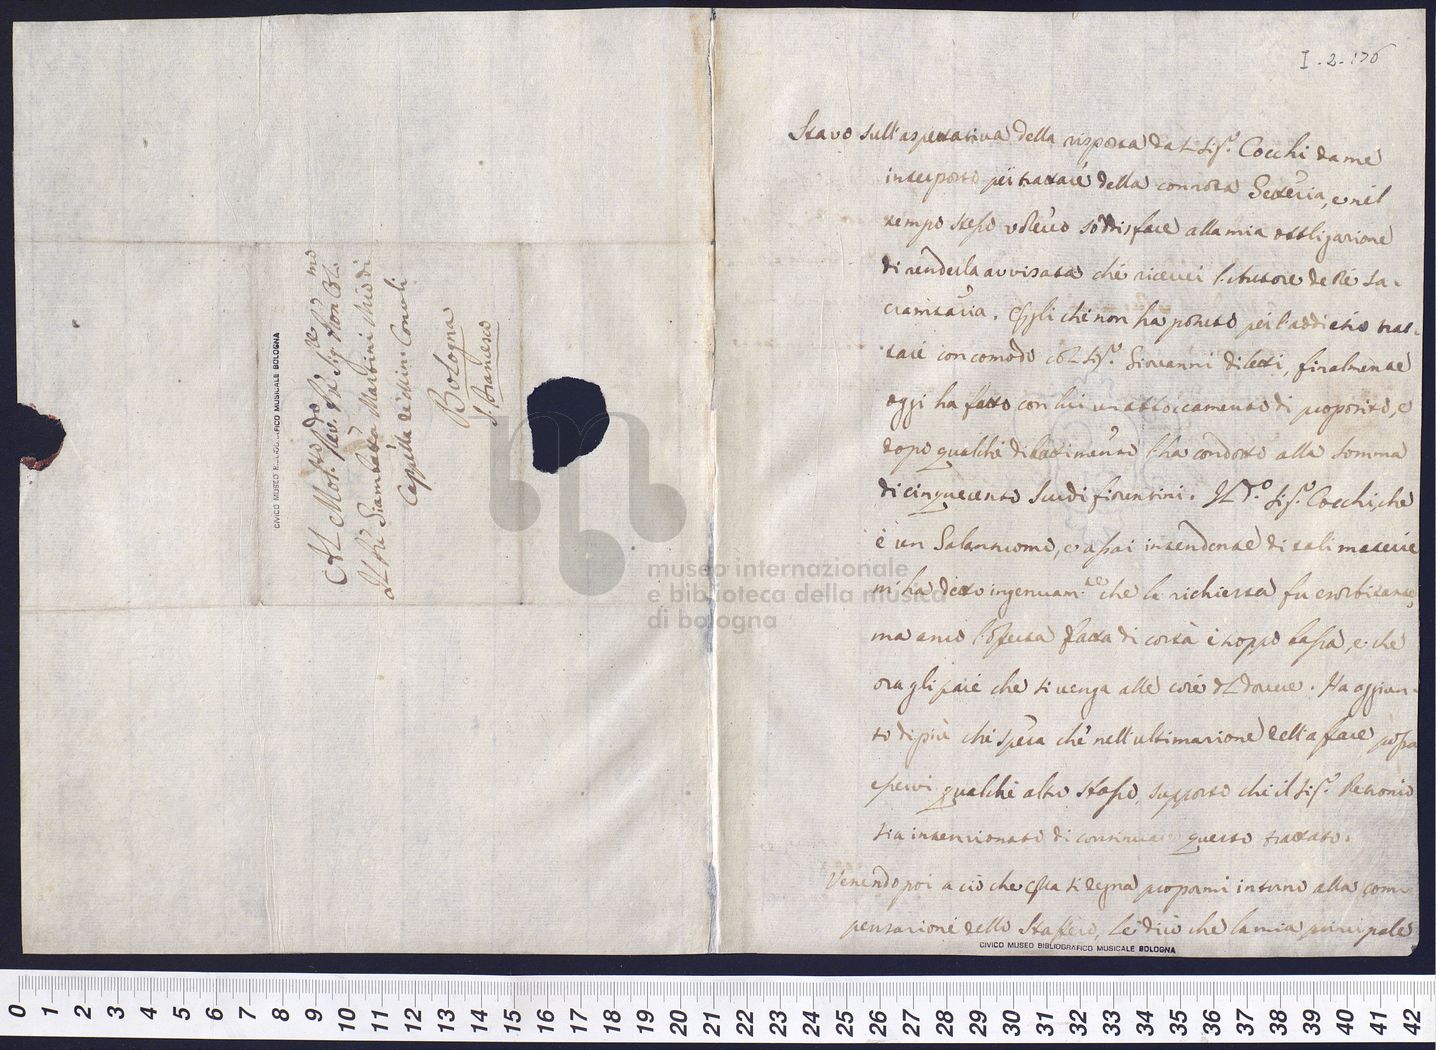 Al Mol. Rev. Pre Sig. Pron Col.mo
Il Pre Giambatta Martini Mro di
Cappella de' Minri Convli
Bologna
S. Francesco
CIVICO MUSEO BIBLIOGRAFICO MUSICALE BOLOGNA
I. 2. 176
Stavo sull'aspettativa della risposta dal Sigr. Cocchi da me
interposto per trattare della connota Setteria, e nel
tempo stesso volevo soddisfare alla mia obbligazione
di renderla avvisata che ricevei l'Autore de Re Sa-
cramtaria. Egli che non ha potuto per l'addietro trat-
tare con comodo col Sigr. Giovanni diletti, finalmente
oggi ha fatto con lui un abboccamento di proposito, e
dopo qualche dibattimento l'ha condotto alla somma
di cinquecento Scudi fiorentini. Il do. Sigr. Cocchi, che
è un Galantuomo, e assai intendente di tali materie
mi ha detto ingenuamte. che la richiesta fu esorbitante,
ma anco l'offerta fatta di costà è troppo bassa, e che
ora gli pare che si venga alle cose del dovere. Ha aggiun-
to di più che spera che nell'ultimazione dell'affare possa
esservi qualche altro sbasso, supposto che il Sigr. Petronio
sia intenzionato di continuare questo trattato.
Venendo poi a ciò che Ella si degna propormi intorno alla com-
pensazione dello Staffero, Le dico che la mia principale
CIVICO MUSEO BIBLIOGRAFICO MUSICALE BOLOGNA
museo internazionale
e biblioteca della musica
di bologna
0 1 2 3 4 5 6 7 8 9 10 11 12 13 14 15 16 17 18 19 20 21 22 23 24 25 26 27 28 29 30 31 32 33 34 35 36 37 38 39 40 41 42